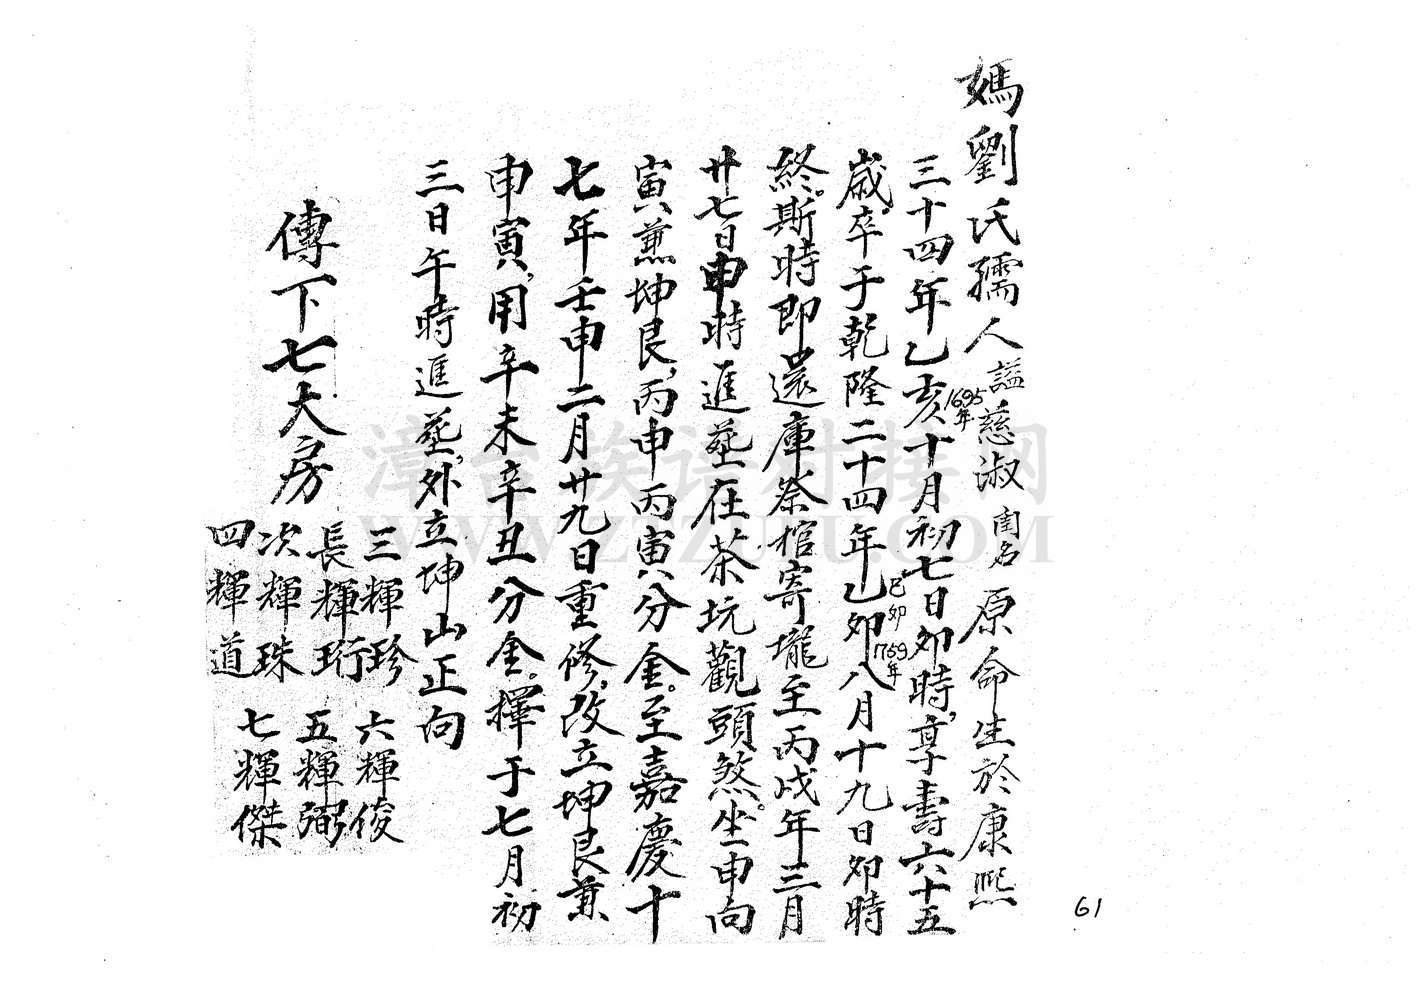 媽劉氏孺人謚慈淑 閨名 原命生於康熙
三十四年乙亥十月初七日卯時,享壽六十五
1695年
歲。卒于乾隆二十四年乙卯八月十九日卯時
己卯 1759年
終。斯時即還庫祭棺寄壠至丙戌年三月
廿七日申時進塟在茶坑觀頭煞。坐申向
寅兼坤艮,丙申丙寅分金。至嘉慶十
七年壬申二月廿九日重修,改立坤艮兼
申寅,用辛未辛丑分金。擇于七月初
三日午時進塟,外立坤山正向
傳下七大房
三輝珍 六輝俊
長輝珩 五輝弼
次輝珠 七輝傑
四輝道
61
漳台族谱对接网
WWW.ZTZUPU.COM